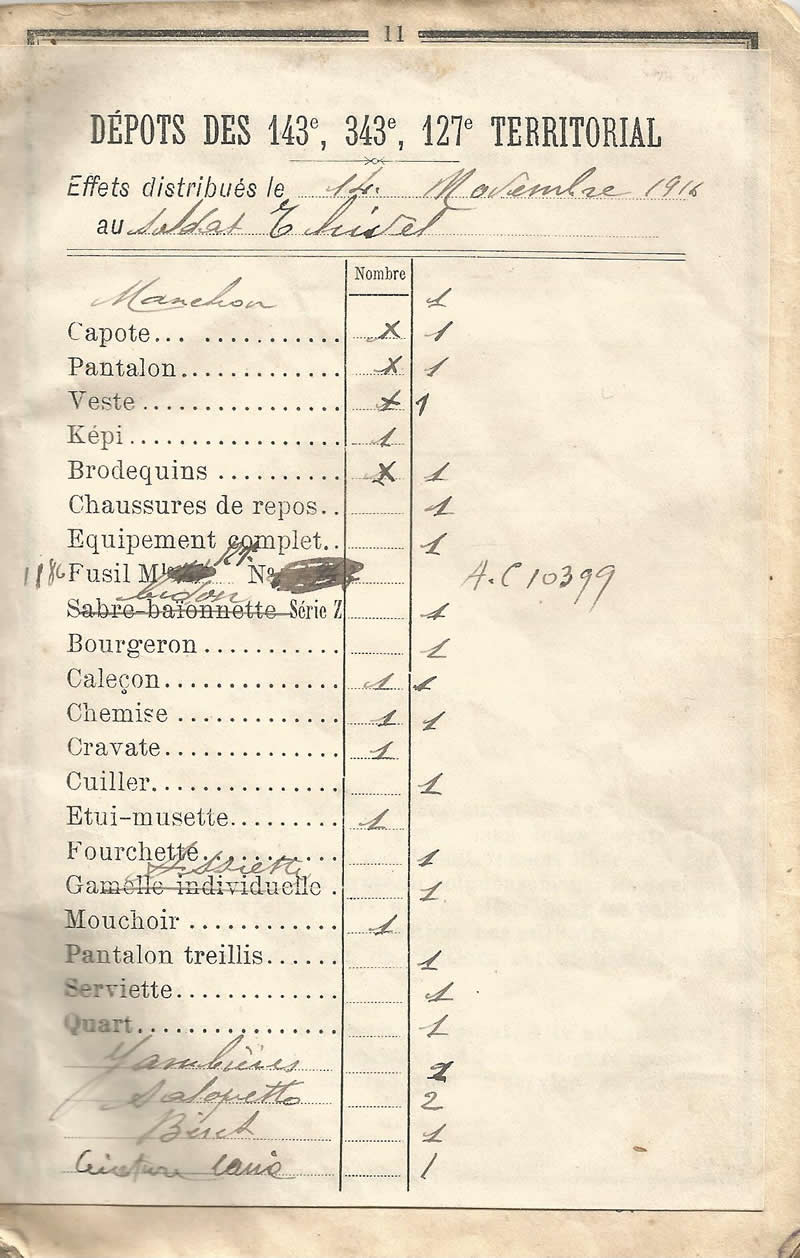 11
DÉPOTS DES 143e, 343e, 127e TERRITORIAL
Effets distribués le 14. Novembre 1916
au soldat
Nombre
Manchon 1
Capote... ........... x 1
Pantalon............. x 1
Veste ................ x 1
Képi................. 1
Brodequins .......... x 1
Chaussures de repos.. 1
Equipement complet.. 1
1186 Fusil Mle No A.C 10399
bidon
Sabre-baïonnette Série Z 1
Bourgeron ........... 1
Caleçon.............. 1 1
Chemise ............. 1 1
Cravate.............. 1
Cuiller............... 1
Etui-musette......... 1
Fourchette........... 1
Assiette
Gamelle individuelle . 1
Mouchoir ............ 1
Pantalon treillis...... 1
Serviette............. 1
Quart................ 1
Jambières 2
Salopette 2
Béret 1
Ceinture laine 1